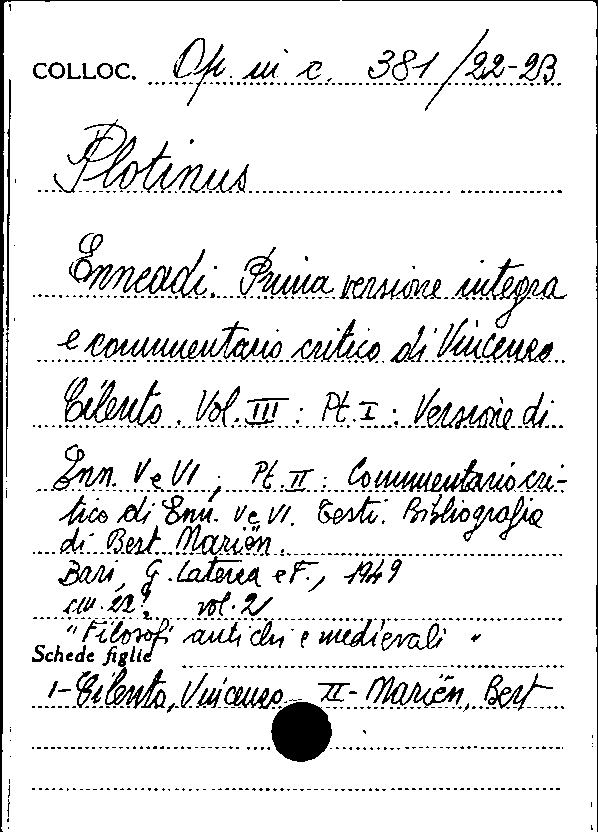 COLLOC. Op. in c. 381/22-23
Plotinus
Enneadi. Prima versione integra
e commentario critico di Vincenzo
Cilento. Vol. III : Pt. I : Versione di
Enn. V e VI ; Pt. II : Commentario cri-
tico di Enn. V e VI. Testi. Bibliografia
di Bert Mariën.
Bari, G. Laterza e F., 1949
cm. 22? vol. 2
"Filosofi antichi e medievali"
Schede figlie
1- Cilento, Vincenzo II- Mariën, Bert